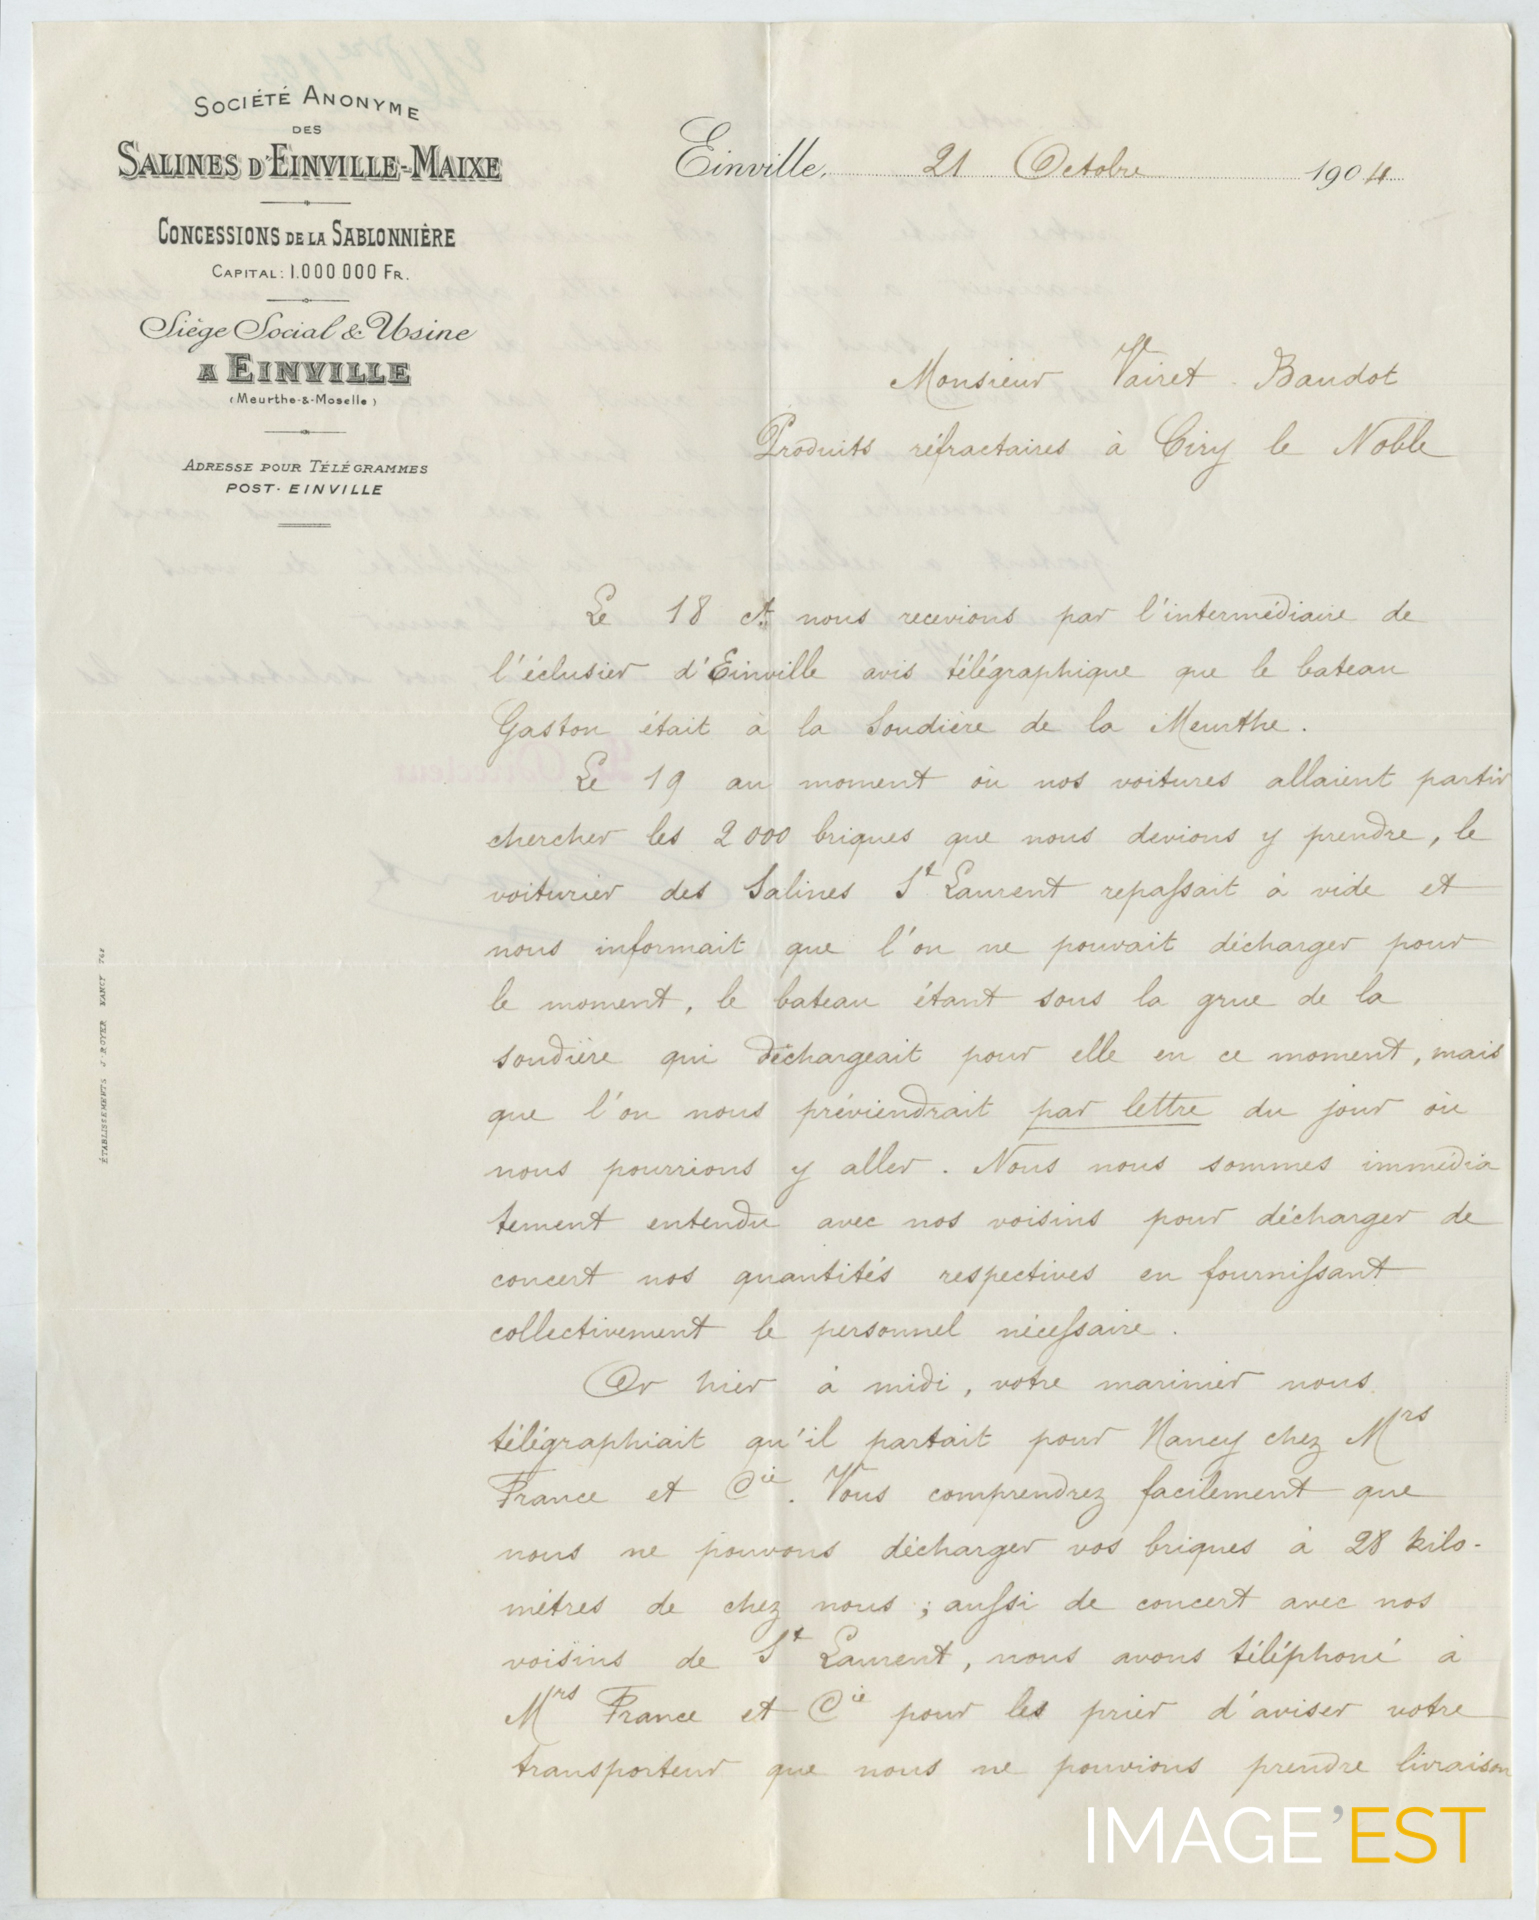 SOCIÉTÉ ANONYME
DES
SALINES D'EINVILLE-MAIXE
CONCESSIONS DE LA SABLONNIÈRE
CAPITAL: 1.000 000 FR.
Siège Social & Usine
A EINVILLE
(Meurthe-&-Moselle)
ADRESSE POUR TÉLÉGRAMMES
POST-EINVILLE
Einville, 21 Octobre 1904
Monsieur Vairet Baudot
Produits réfractaires à Ciry le Noble
Le 18 ct nous recevions par l'intermédiaire de
l'éclusier d'Einville avis télégraphique que le bateau
Gaston était à la Soudière de la Meurthe.
Le 19 au moment où nos voitures allaient partir
chercher les 2000 briques que nous devions y prendre, le
voiturier des Salines St Laurent repassait à vide et
nous informait que l'on ne pouvait décharger pour
le moment, le bateau étant sous la grue de la
soudière qui déchargeait pour elle en ce moment, mais
que l'on nous préviendrait par lettre du jour où
nous pourrions y aller. Nous nous sommes immédia
tement entendu avec nos voisins pour décharger de
concert nos quantités respectives en fournissant
collectivement le personnel nécessaire.
Or hier à midi, votre marinier nous
télégraphiait qu'il partait pour Nancy chez Mrs
France et Cie. Vous comprendrez facilement que
nous ne pouvons décharger vos briques à 28 kilo-
mètres de chez nous ; aussi de concert avec nos
voisins de St Laurent, nous avons téléphoné à
Mrs France et Cie pour les prier d'aviser votre
transporteur que nous ne pouvions prendre livraison
ÉTABLISSEMENTS J. ROYER NANCY
IMAGE'EST